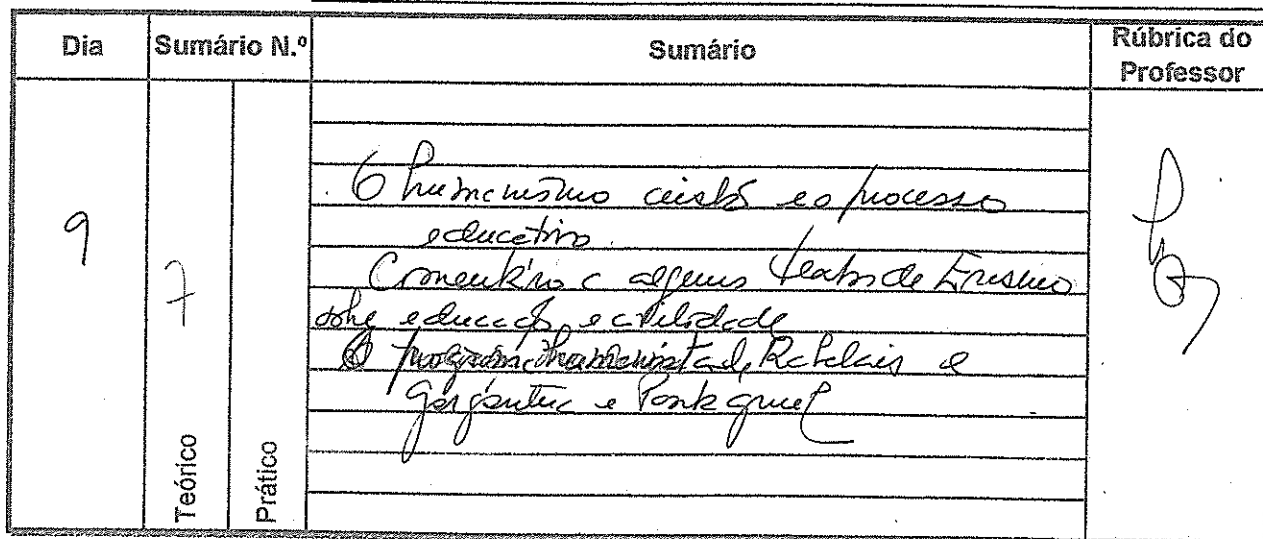 Dia Sumário N.º Sumário Rúbrica do Professor
9
7
Teórico
Prático
. O humanismo cristão e o processo
educativo.
Comentário a alguns textos de Erasmo
sobre educação e civilidade
O programa humanista de Rabelais e
Gargântua e Pantagruel